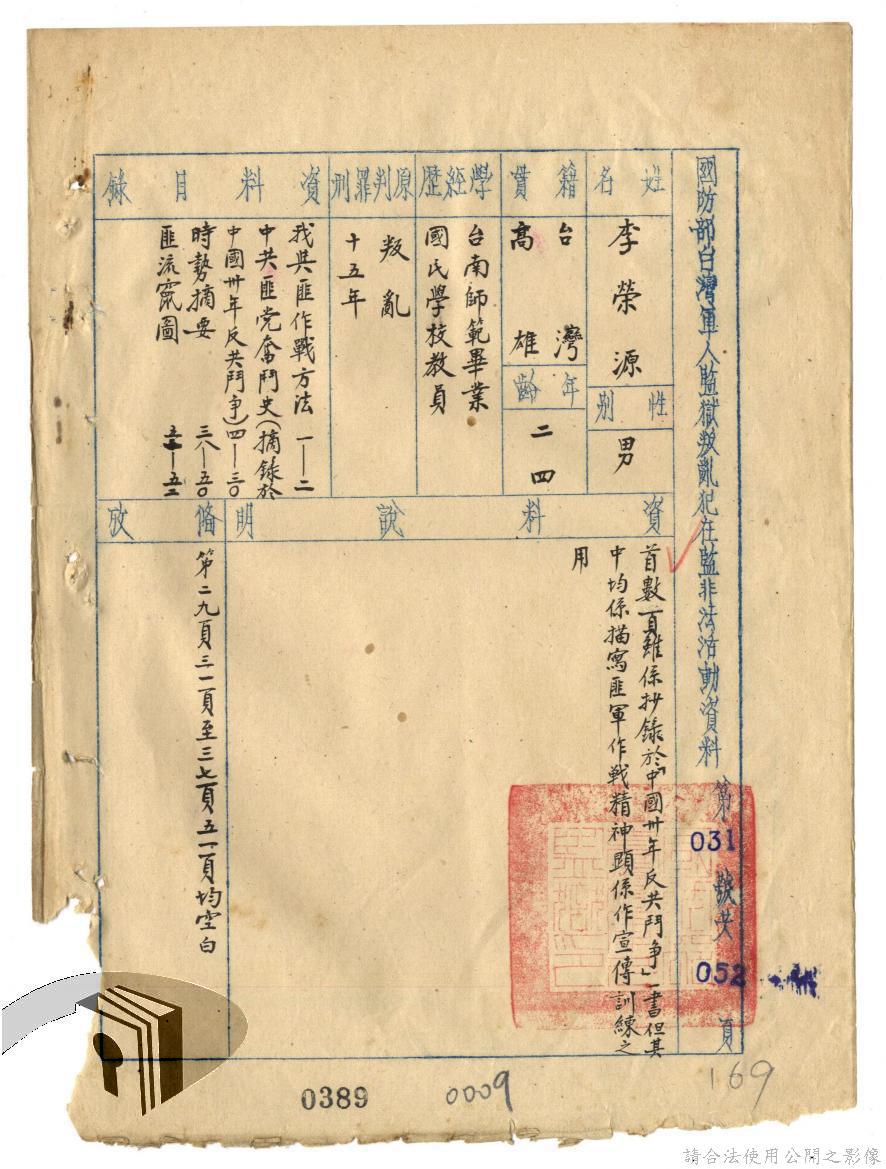 國防部台灣軍人監獄叛亂犯在監非法活動資料 第031號共052頁
姓名
李榮源
性別
男
籍貫
台灣
高雄
年齡
二四
學經歷
台南師範畢業
國民學校教員
原判罪刑
叛亂
十五年
資料目錄
我與匪作戰方法 一—二
中共匪党奮鬥史(摘錄於
中國卅年反共鬥爭)四—三〇
時勢摘要 三八—五〇
匪流竄圖
資料說明
首數頁雖係抄錄於「中國卅年反共鬥爭」一書但其
中均係描寫匪軍作戰精神顯係作宣傳訓練之
用
備攷
第二九頁三一頁至三七頁五一頁均空白
0389
0009
169
請合法使用公開之影像